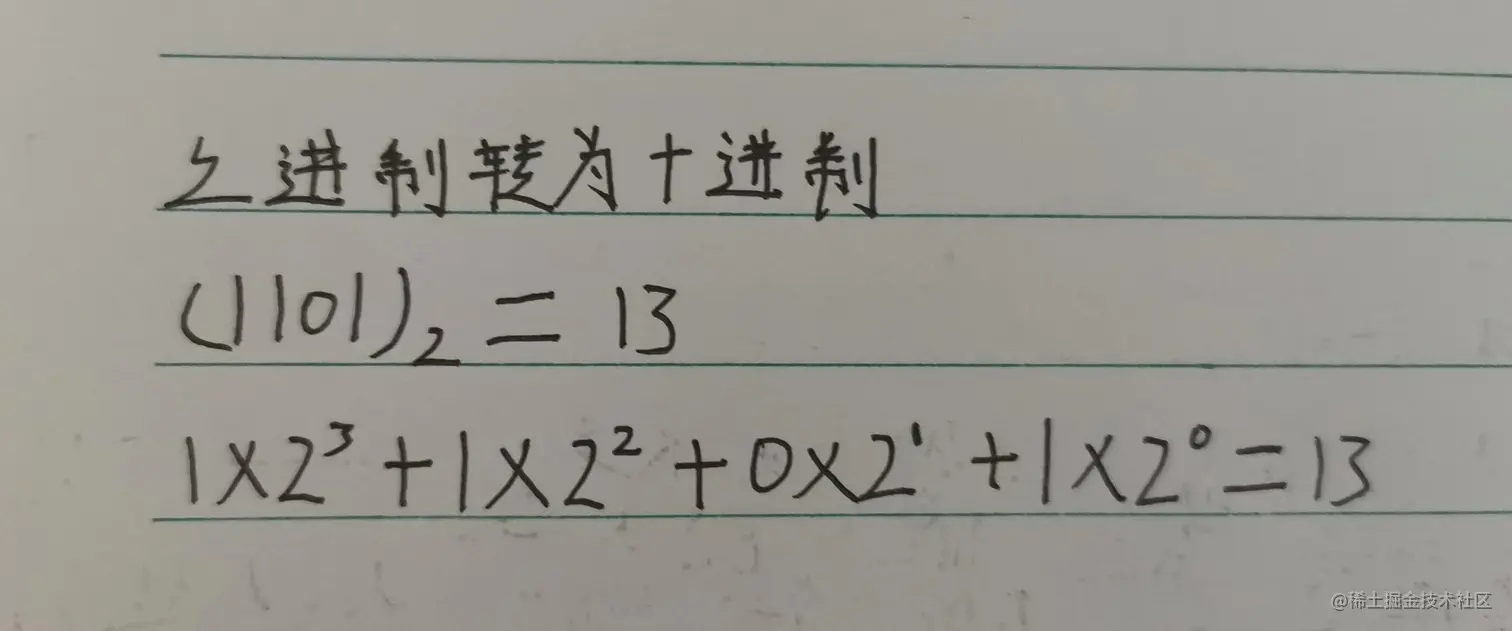 二进制转为十进制
(1101)₂ = 13
1×2³+1×2²+0×2¹+1×2⁰=13
@稀土掘金技术社区